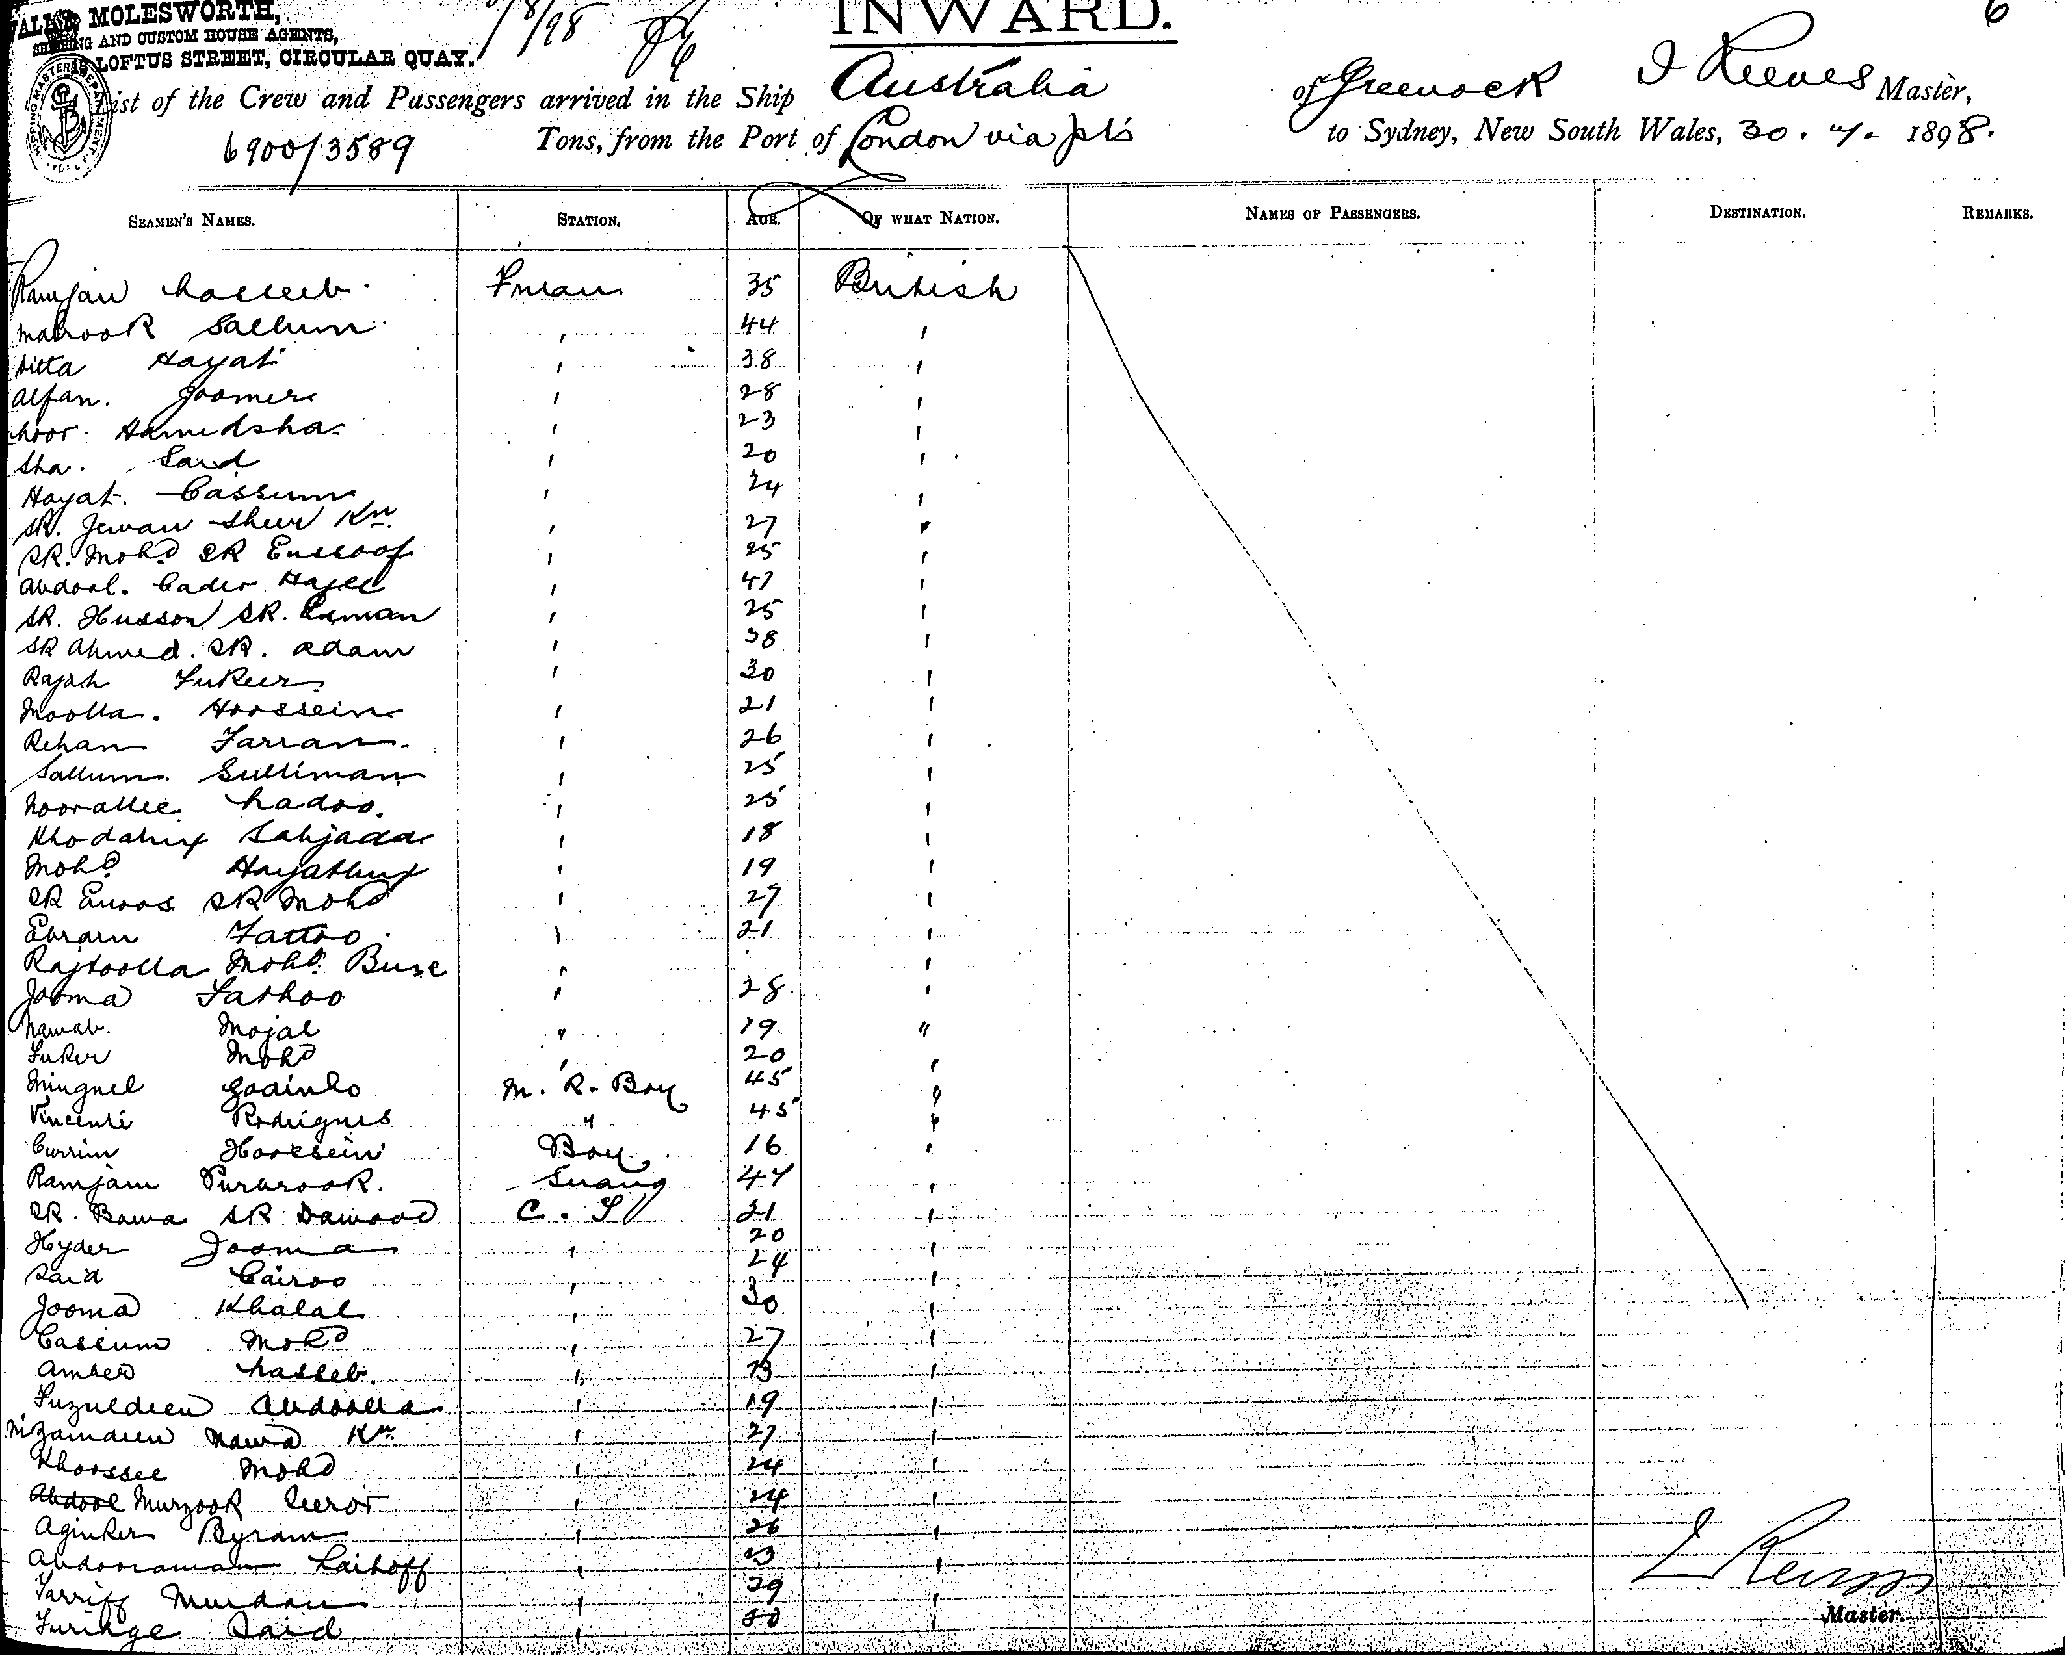 MOLESWORTH, 1/8/98 INWARD. 6
SHIPPING AND CUSTOM HOUSE AGENTS,
LOFTUS STREET, CIRCULAR QUAY.
List of the Crew and Passengers arrived in the Ship Australia of Greenock I Reeves Master,
6900/3589 Tons, from the Port of London via pts to Sydney, New South Wales, 30. 7. 1898.
SEAMEN'S NAMES. STATION. AGE. OF WHAT NATION. NAMES OF PASSENGERS. DESTINATION. REMARKS.
Ramjan Nasseeb Fmean 35 British
Mabrook Sallum ' 44 '
Ditta Hayat ' 38 '
Alfan. Joomer ' 28 '
Noor. Hamedsha ' 23 '
Sha. Said ' 20 '
Hayat. Cassum ' 24 '
SK. Jewan Sheer Kn ' 27 '
SK. Mohd SK Eussoof ' 25 '
Abdool. Cader Hajee ' 47 '
SK. Husson SK. Esman ' 25 '
SK Ahmed. SK. Adam ' 38 '
Rajah Fukeer ' 30 '
Moolla. Hoossein ' 21 '
Rehan Farran ' 26 '
Sallum Sulliman ' 25 '
Noorallee Nadoo. ' 25 '
Khodabux Sahjada ' 18 '
Mohd Hayatbux ' 19 '
SK Enoos SK Mohd ' 27 '
Ebram Fattoo ' 21 '
Rajboolla Mohd. Buxe ' '
Jooma Fathoo ' 28 '
Nawab. Mojal " 19 "
Fuker Mohd ' 20 '
Minguel Godinho M. R. Boy 45 "
Vincenti Rodrigues " 45 "
Currim Hoossein Boy 16 '
Ramjam Purbrook. Suang 47 '
SK. Bawa SK Dawood C. S 21 '
Hyder Jooma ' 20 '
Said Cairoo ' 24 '
Jooma Khalal ' 30 '
Cassum Mohd ' 27 '
Amber Nasseb. ' '
Fuzuldeen Abdoolla ' 19 '
Nizamdeen Nawd Kn. ' 27 '
Khoossee Mohd ' 24 '
Abdool Murzook ' 24 '
Byram ' 26 '
Abdooraman Laihoff ' '
Tarriff Mundan ' 29 '
Said ' '
I Reeves
Master.